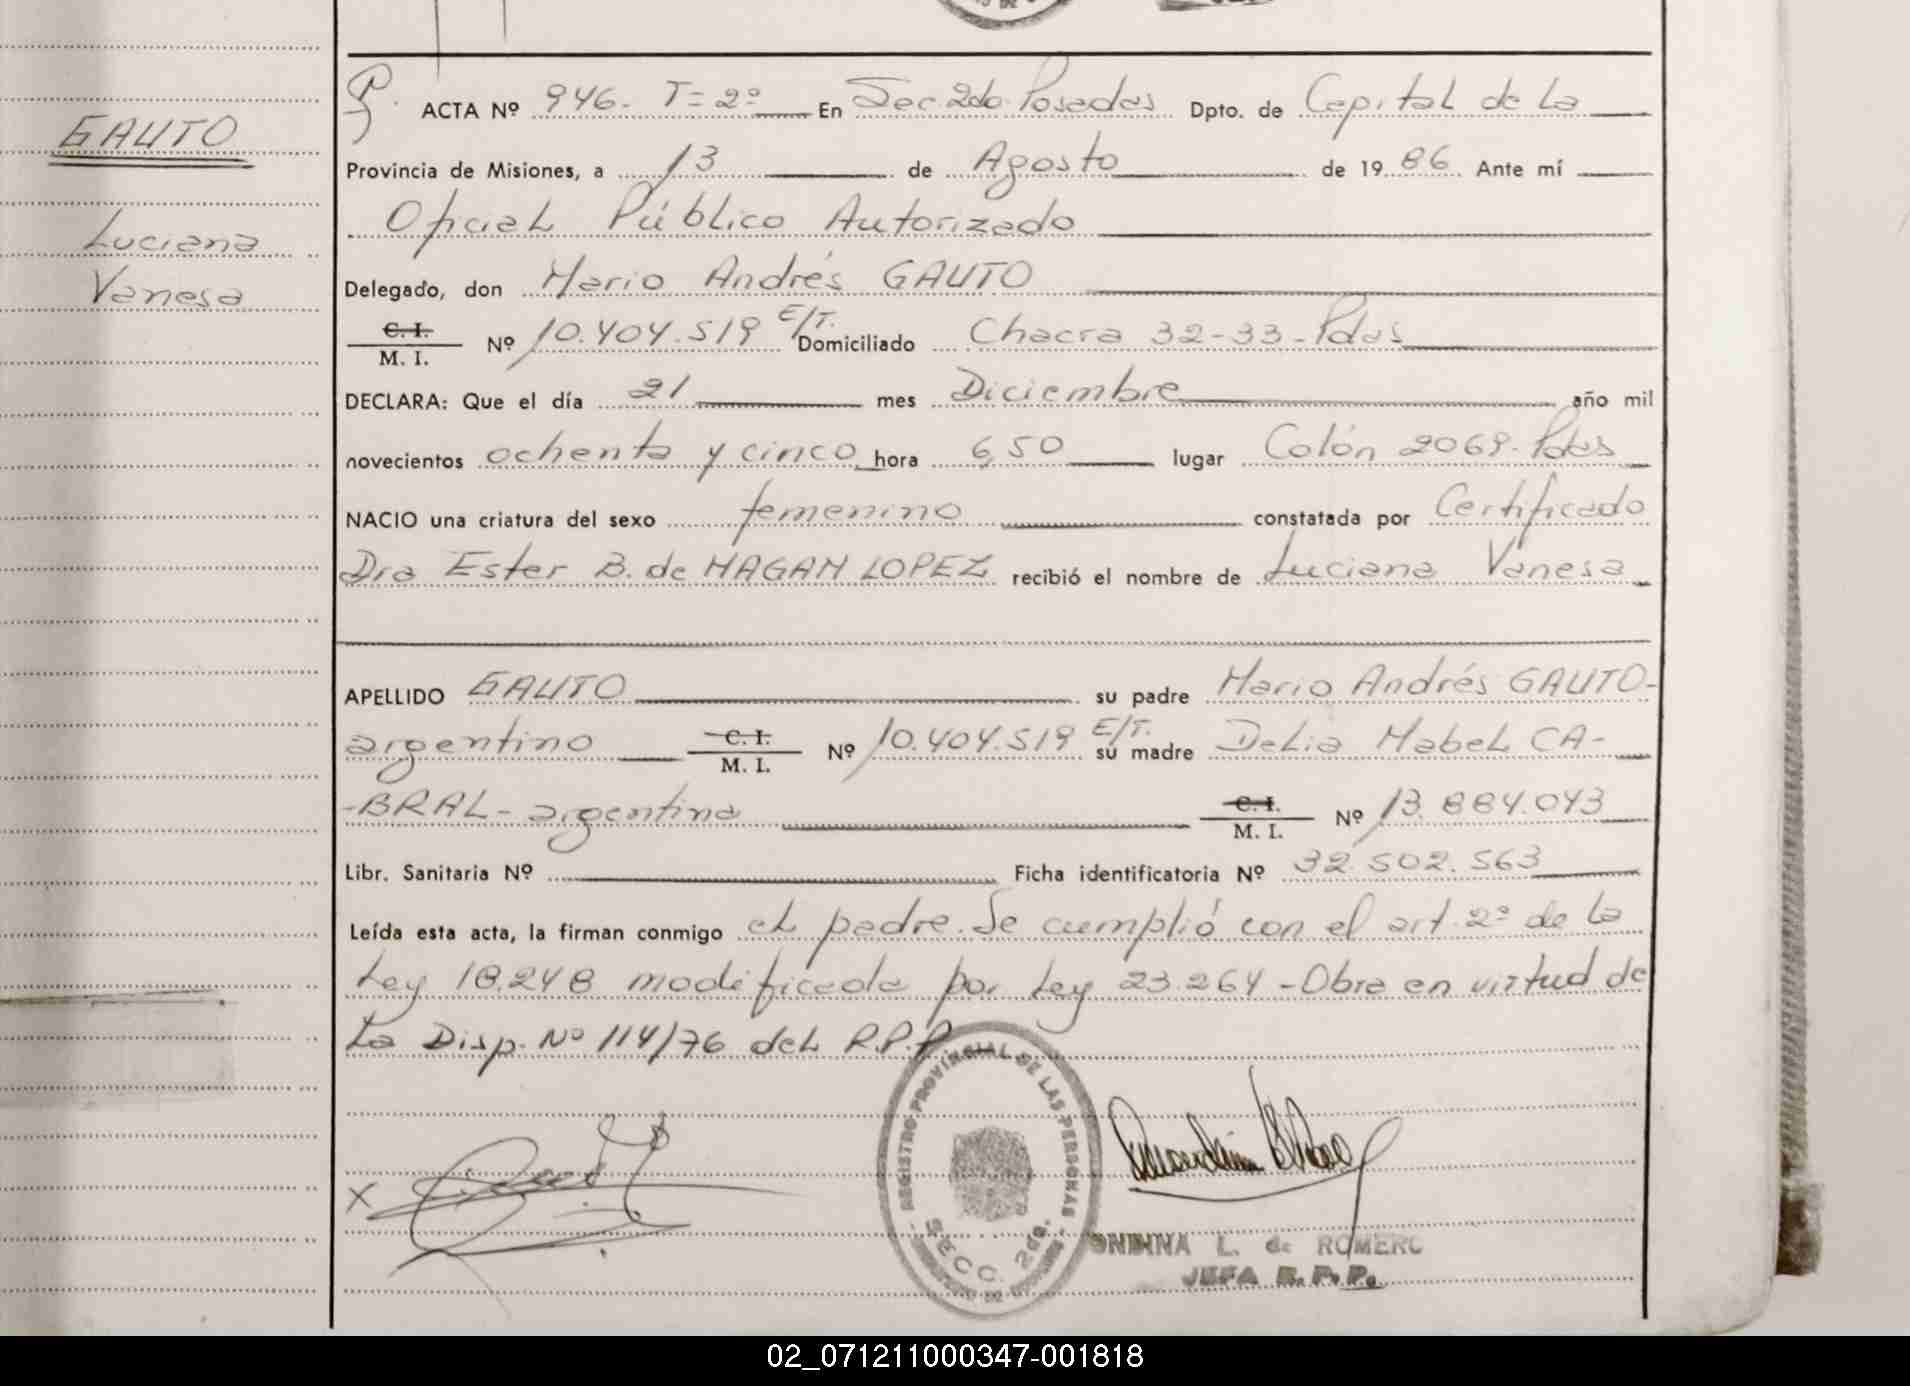 GAUTO
Luciana
Vanesa
ACTA Nº 946. T=2º En Sec. 2do. Posadas Dpto. de Capital de La
Provincia de Misiones, a 13 de Agosto de 1986. Ante mí
Oficial Público Autorizado
Delegado, don Mario Andrés GAUTO
C. I.
M. I. Nº 10.404.519 E/T. Domiciliado Chacra 32-33-Pdas
DECLARA: Que el día 21 mes Diciembre año mil
novecientos ochenta y cinco hora 6,50 lugar Colón 2069-Pdas
NACIO una criatura del sexo femenino constatada por Certificado
Dra Ester B. de MAGAN LOPEZ recibió el nombre de Luciana Vanesa
APELLIDO GAUTO su padre Mario Andrés GAUTO-
argentino C. I. M. I. Nº 10.404.519 E/T. su madre Delia Mabel CA-
-BRAL- argentina C. I. M. I. Nº 13.884.043
Libr. Sanitaria Nº Ficha identificatoria Nº 32.502.563
Leída esta acta, la firman conmigo el padre. Se cumplió con el art. 2º de la
Ley 18.248 modificada por Ley 23.264 - Obra en virtud de
La Disp. Nº 114/76 del R.P.P.
REGISTRO PROVINCIAL DE LAS PERSONAS
SECC. 2da.
X
ONDINNA L. de ROMERO
JEFA R. P. P.
02_071211000347-001818